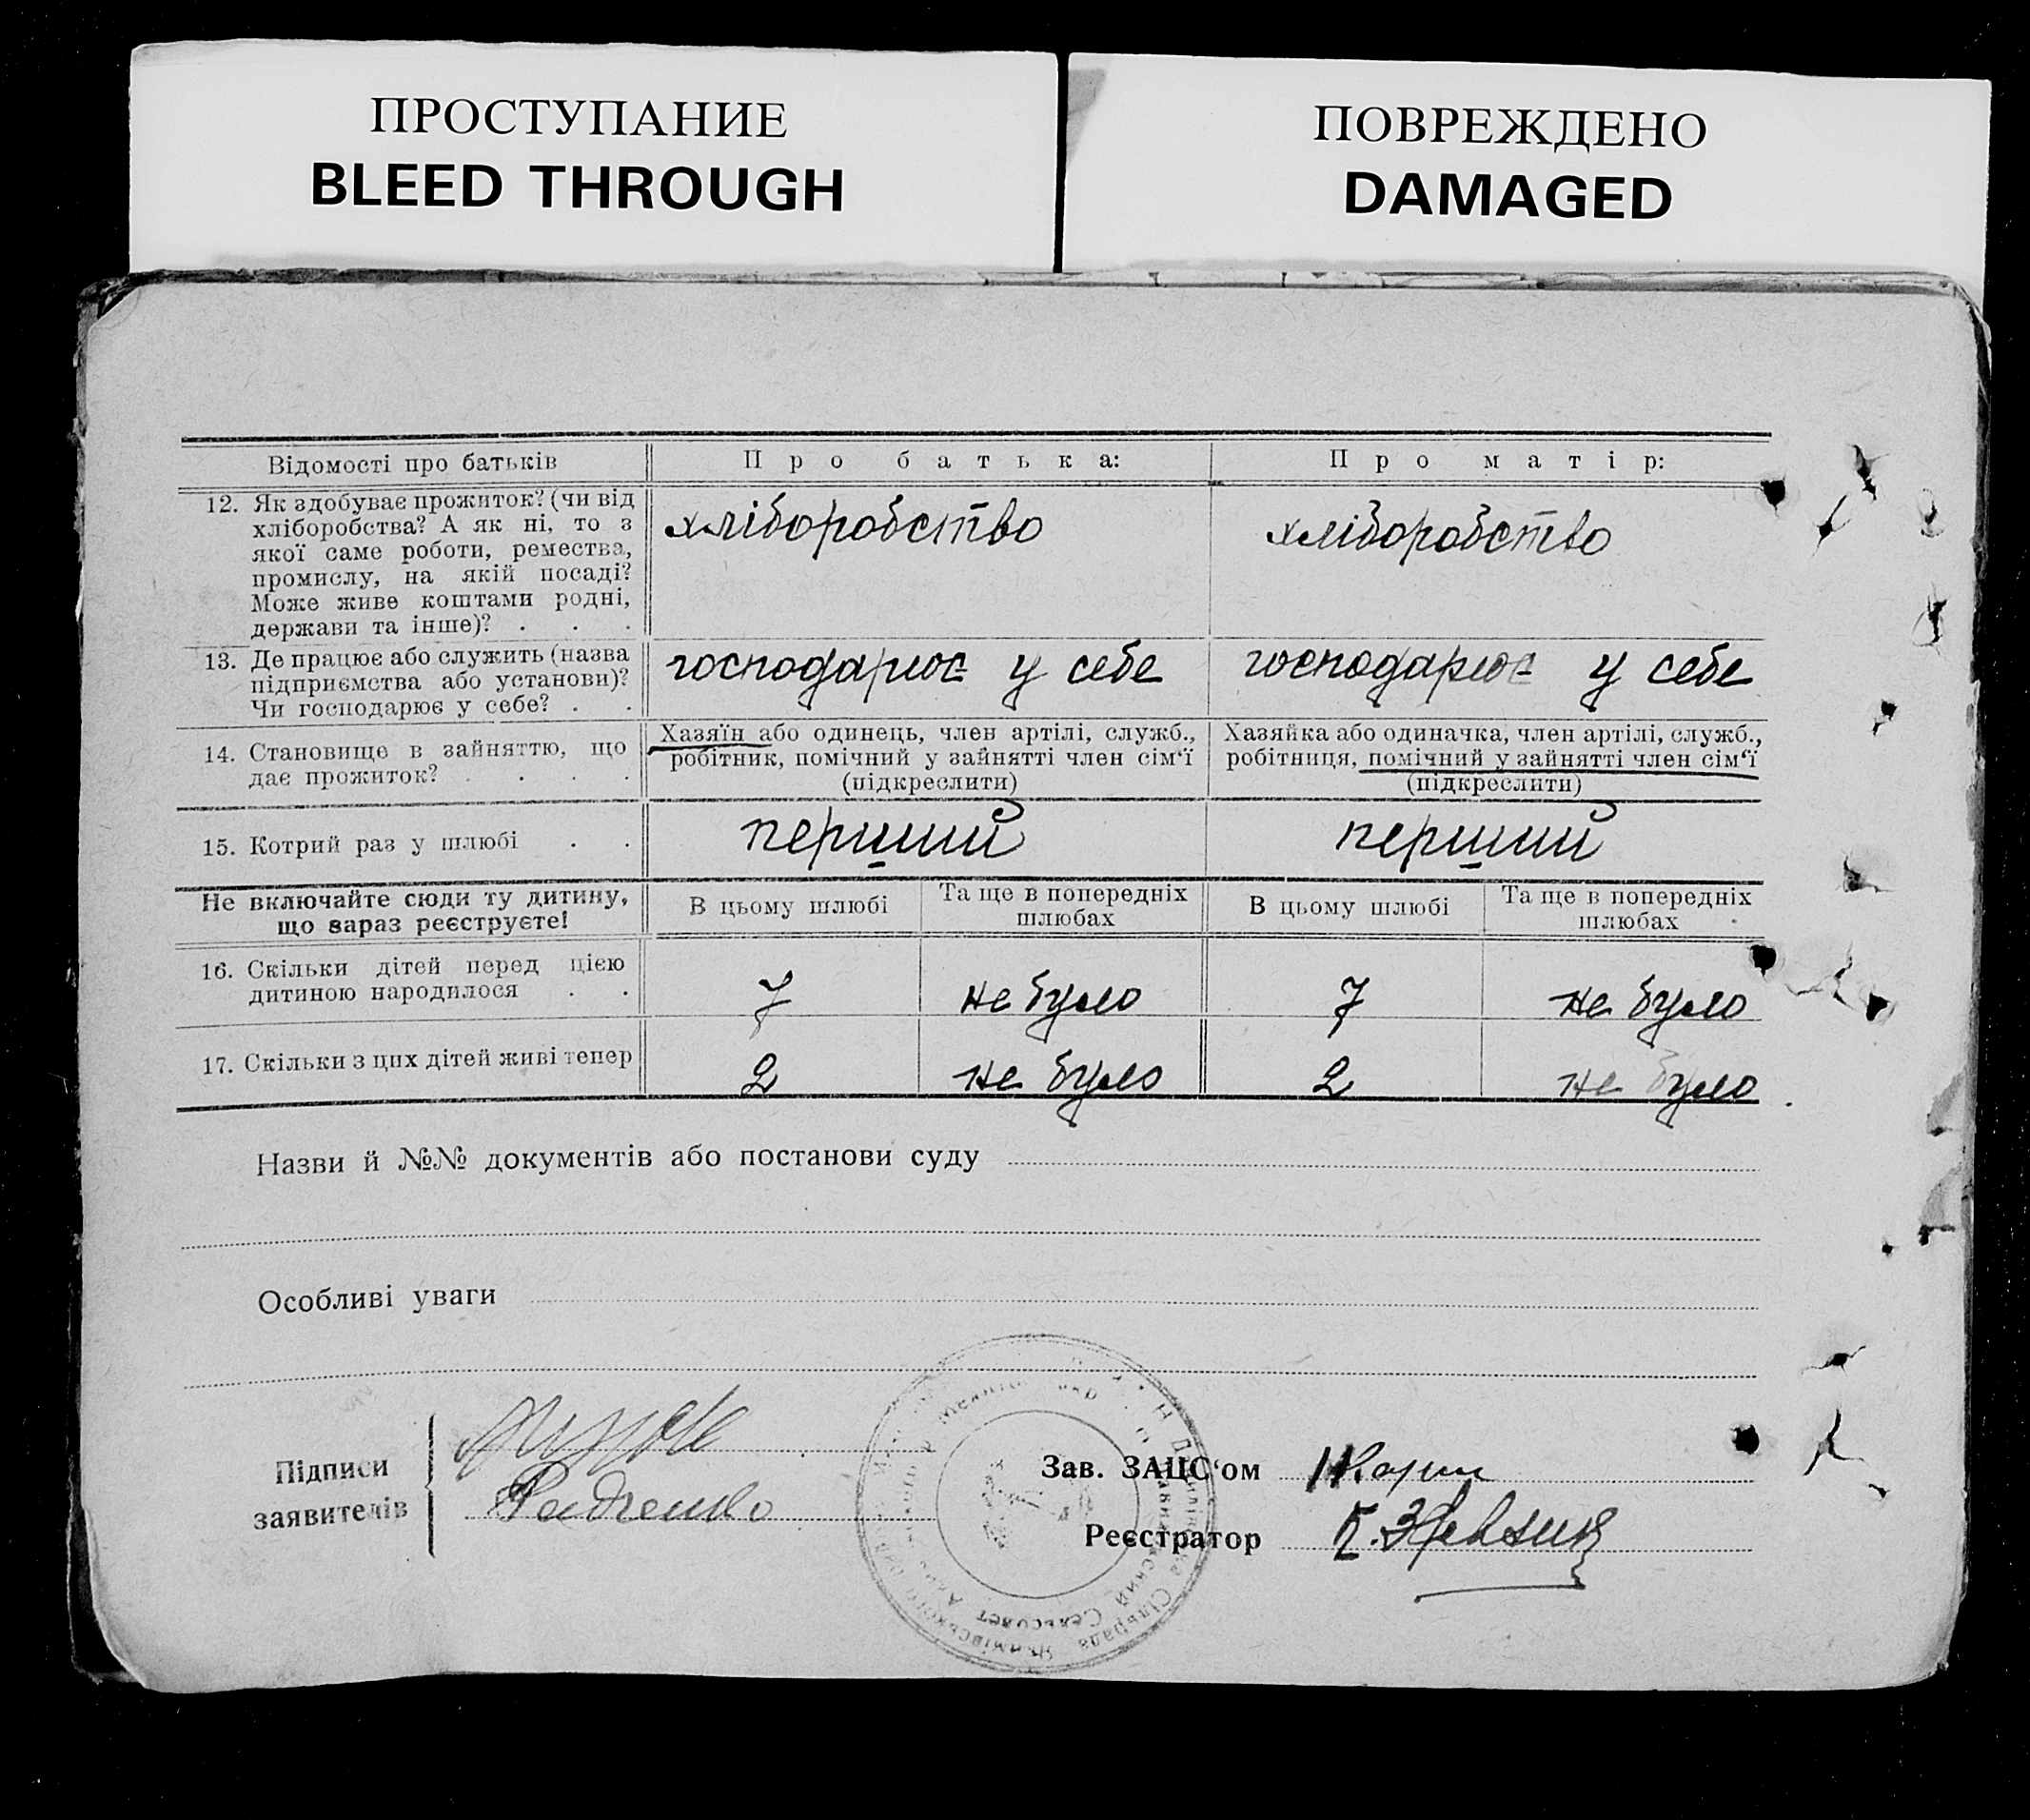 ПРОСТУПАНИЕ
BLEED THROUGH
ПОВРЕЖДЕНО
DAMAGED
Відомості про батьків
Про батька:
Про матір:
12. Як здобуває прожиток? (чи від
хліборобства? А як ні, то з
якої саме роботи, ремества,
промислу, на якій посаді?
Може живе коштами родні,
держави та інше)? . . .
хліборобство
хліборобство
13. Де працює або служить (назва
підприємства або установи)?
Чи господарює у себе? . .
господарює у себе
господарює у себе
14. Становище в зайняттю, що
дає прожиток? . . . .
Хазяїн або одинець, член артілі, служб.,
робітник, помічний у зайнятті член сім‘ї
(підкреслити)
Хазяйка або одиначка, член артілі, служб.,
робітниця, помічний у зайнятті член сім‘ї
(підкреслити)
15. Котрий раз у шлюбі . .
перший
перший
Не включайте сюди ту дитину,
що зараз реєструєте!
В цьому шлюбі
Та ще в попередніх
шлюбах
В цьому шлюбі
Та ще в попередніх
шлюбах
16. Скільки дітей перед цією
дитиною народилося . .
7
не було
7
не було
17. Скільки з цих дітей живі тепер
2
не було
2
не було
Назви й №№ документів або постанови суду
Особливі уваги
Підписи
заявителів
Радченко
Зав. ЗАЦС‘ом
Реєстратор
Сільрада
Сельсовет